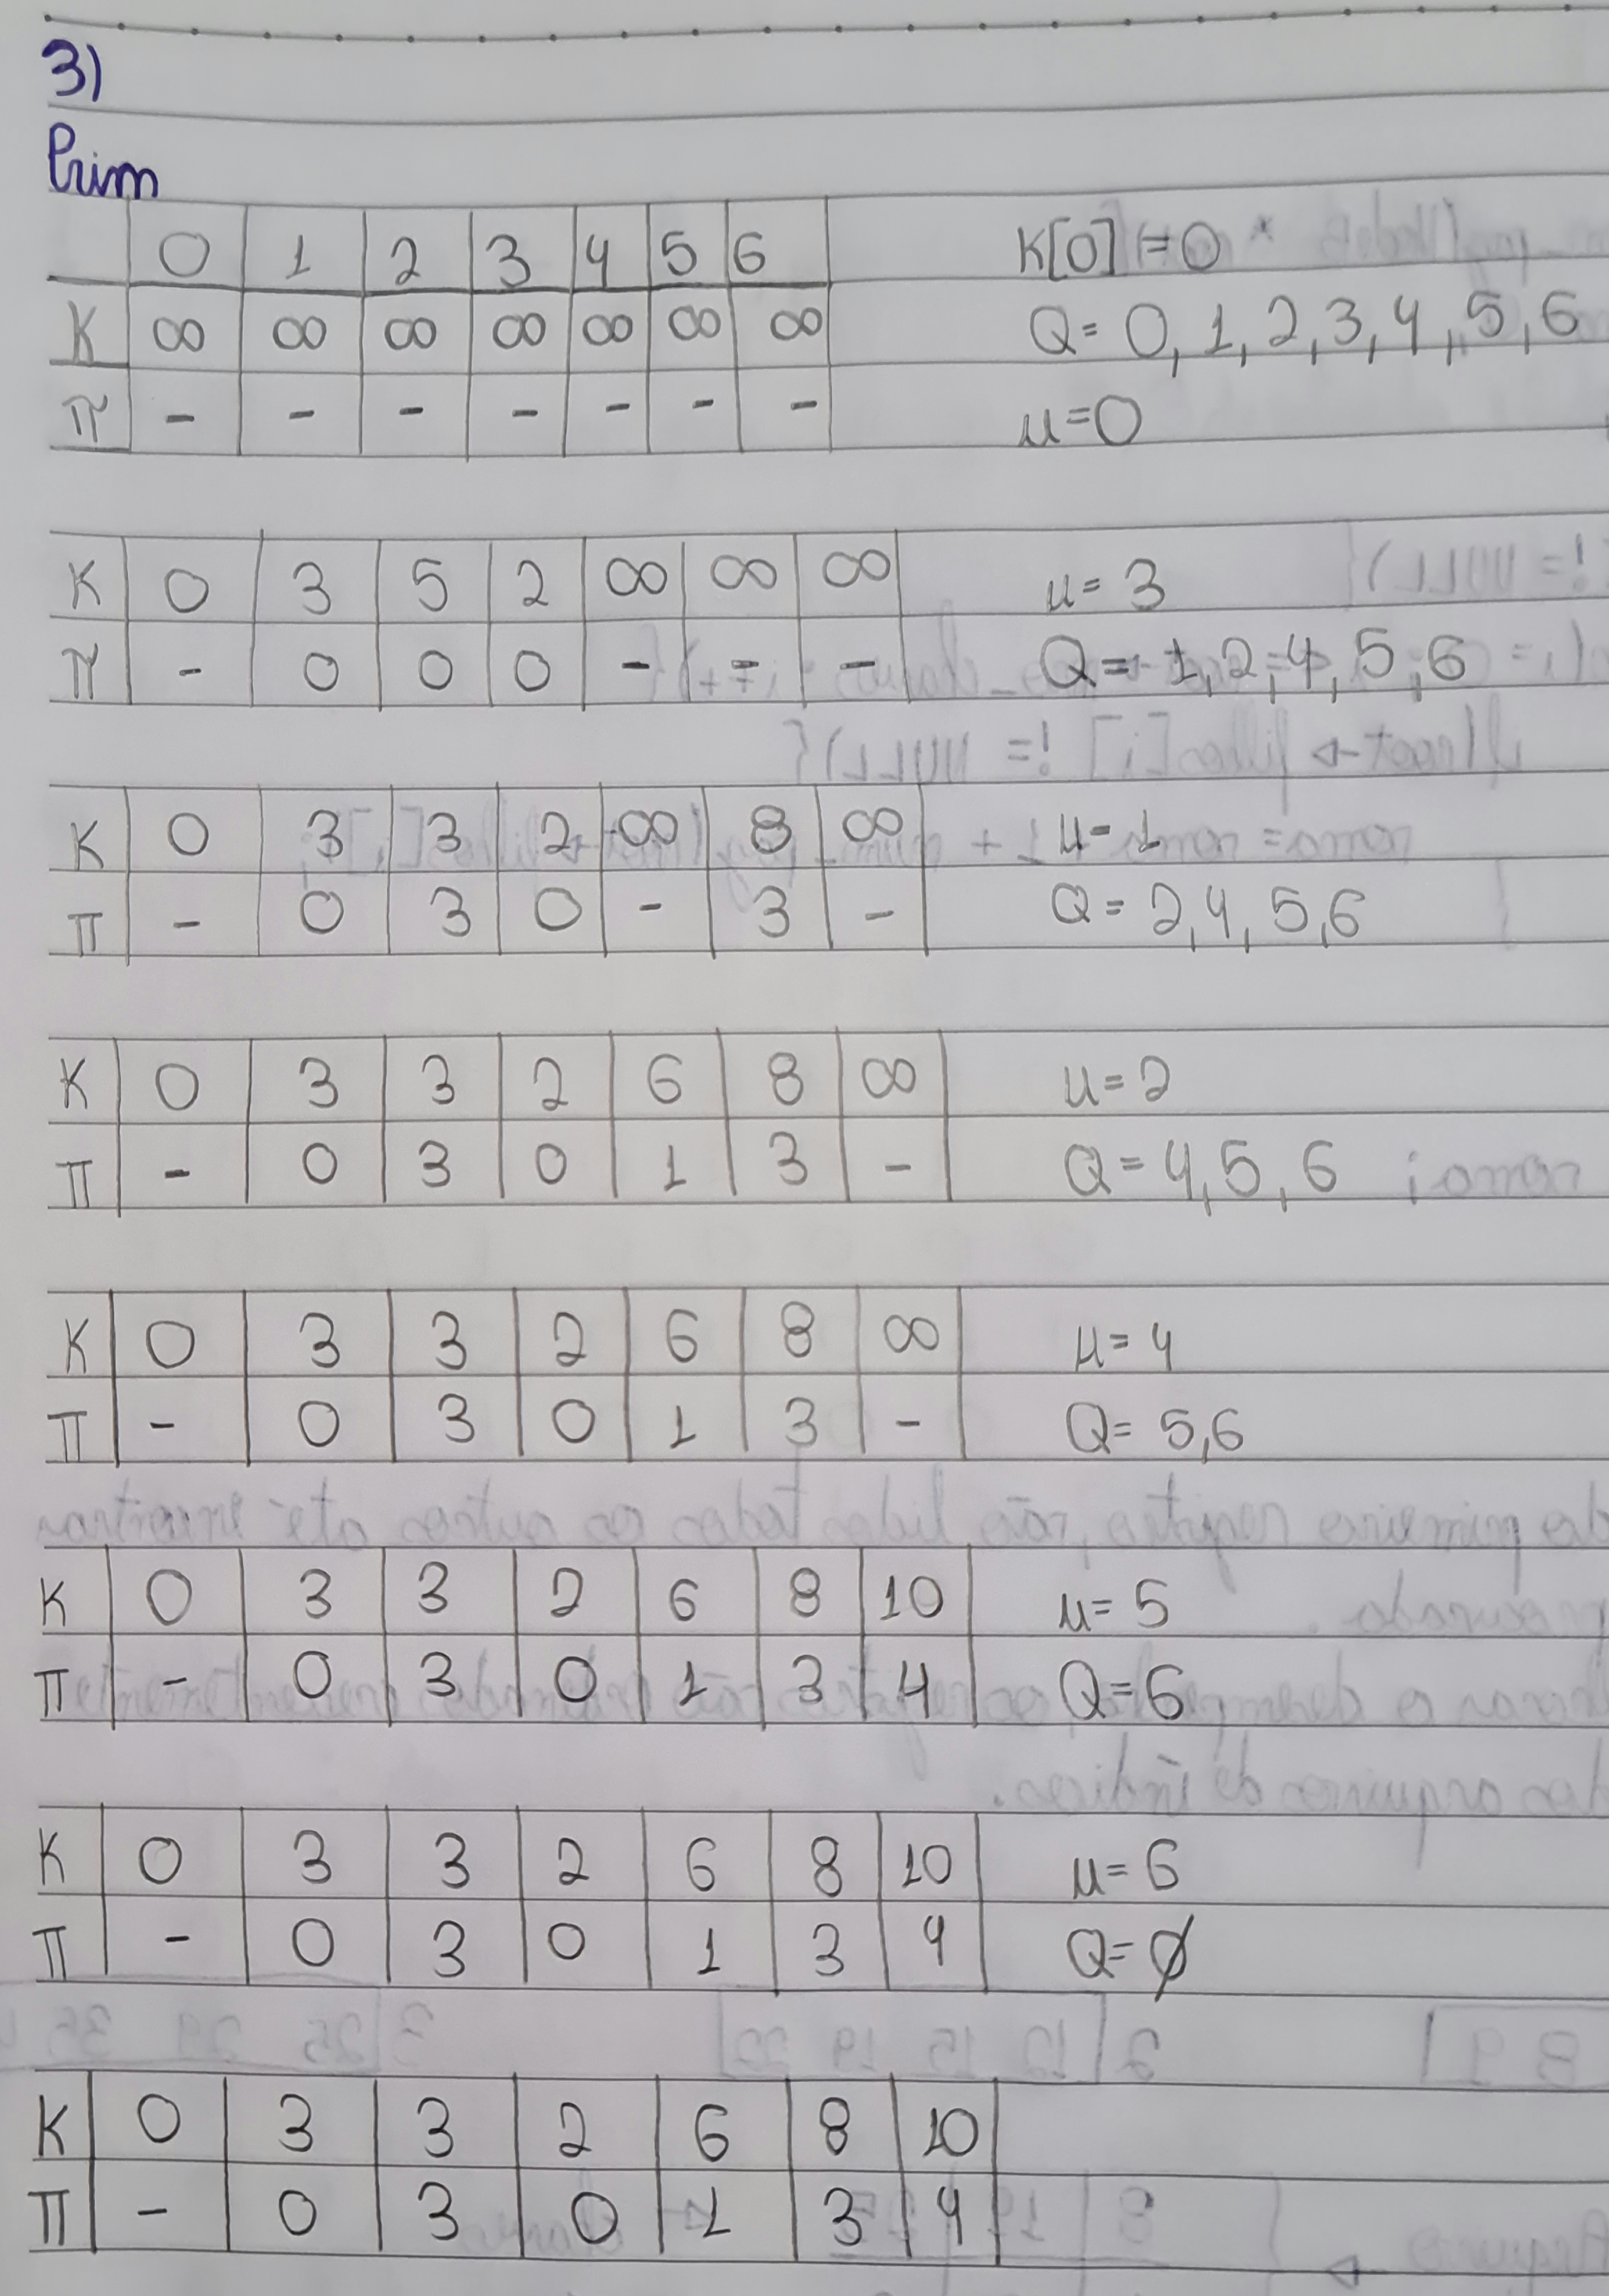 3)
Prim
0 1 2 3 4 5 6
K ∞ ∞ ∞ ∞ ∞ ∞ ∞
π - - - - - - -
K[0]=0
Q= 0,1,2,3,4,5,6
u=0
K 0 3 5 2 ∞ ∞ ∞ u= 3
π - 0 0 0 - - - Q= 1,2,4,5,6
K 0 3 3 2 ∞ 8 ∞ u= 1
π - 0 3 0 - 3 - Q= 2,4,5,6
K 0 3 3 2 6 8 ∞ u=2
π - 0 3 0 1 3 - Q=4,5,6
K 0 3 3 2 6 8 ∞ u= 4
π - 0 3 0 1 3 - Q= 5,6
K 0 3 3 2 6 8 10 u= 5
π - 0 3 0 1 3 4 Q=6
K 0 3 3 2 6 8 10 u= 6
π - 0 3 0 1 3 4 Q=∅
K 0 3 3 2 6 8 10
π - 0 3 0 1 3 4